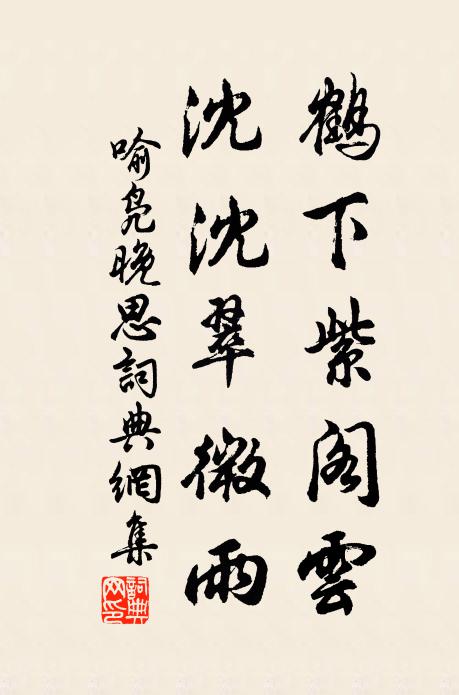 鶴下紫阁雲
沈沈翠微雨
喻凫晚思詞典網集
詞典网印